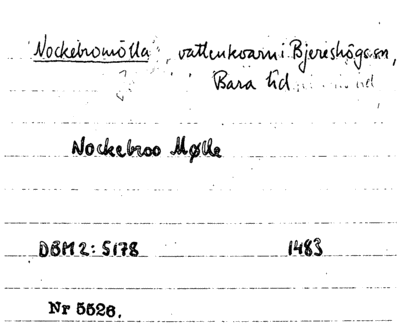 "Nockebromölla", vattenkvarn i Bjereshögs sn,
Bara tid
Nockebroo Mølle
DBM 2: 5178 1483
Nr 5526.